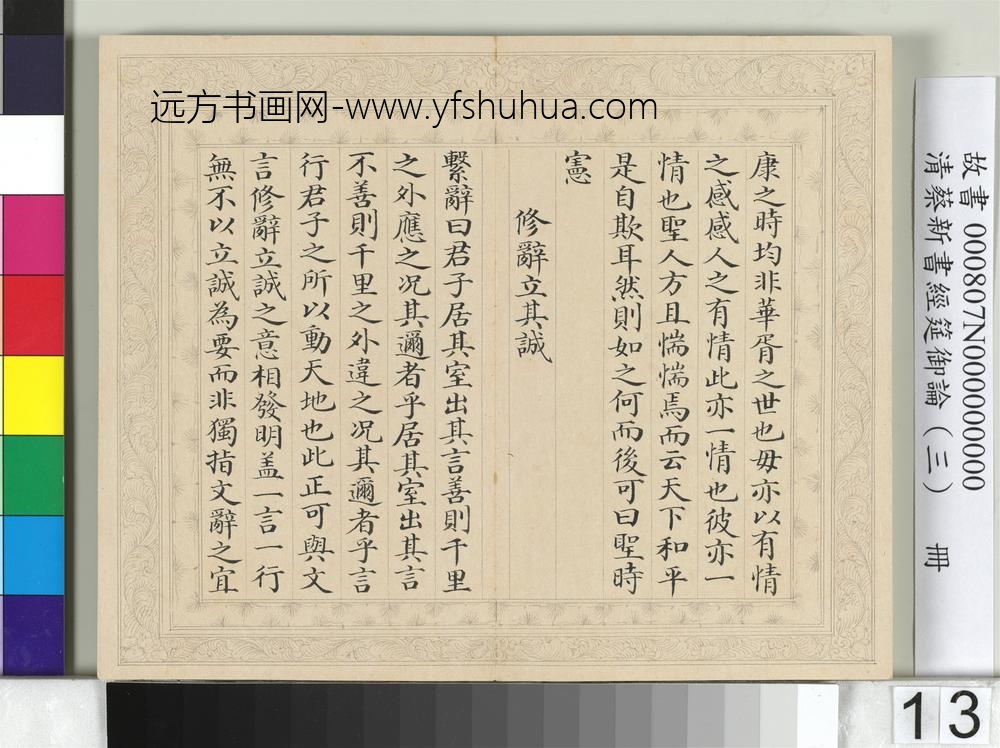 远方书画网-www.yfshuhua.com
康之時均非華胥之世也毋亦以有情
之感感人之有情此亦一情也彼亦一
情也聖人方且惴惴焉而云天下和平
是自欺耳然則如之何而後可曰聖時
憲
修辭立其誠
繫辭曰君子居其室出其言善則千里
之外應之况其邇者乎居其室出其言
不善則千里之外違之况其邇者乎言
行君子之所以動天地也此正可與文
言修辭立誠之意相發明盖一言一行
無不以立誠為要而非獨指文辭之宜
故書000807N000000000
清蔡新書經筵御論（三） 冊
13